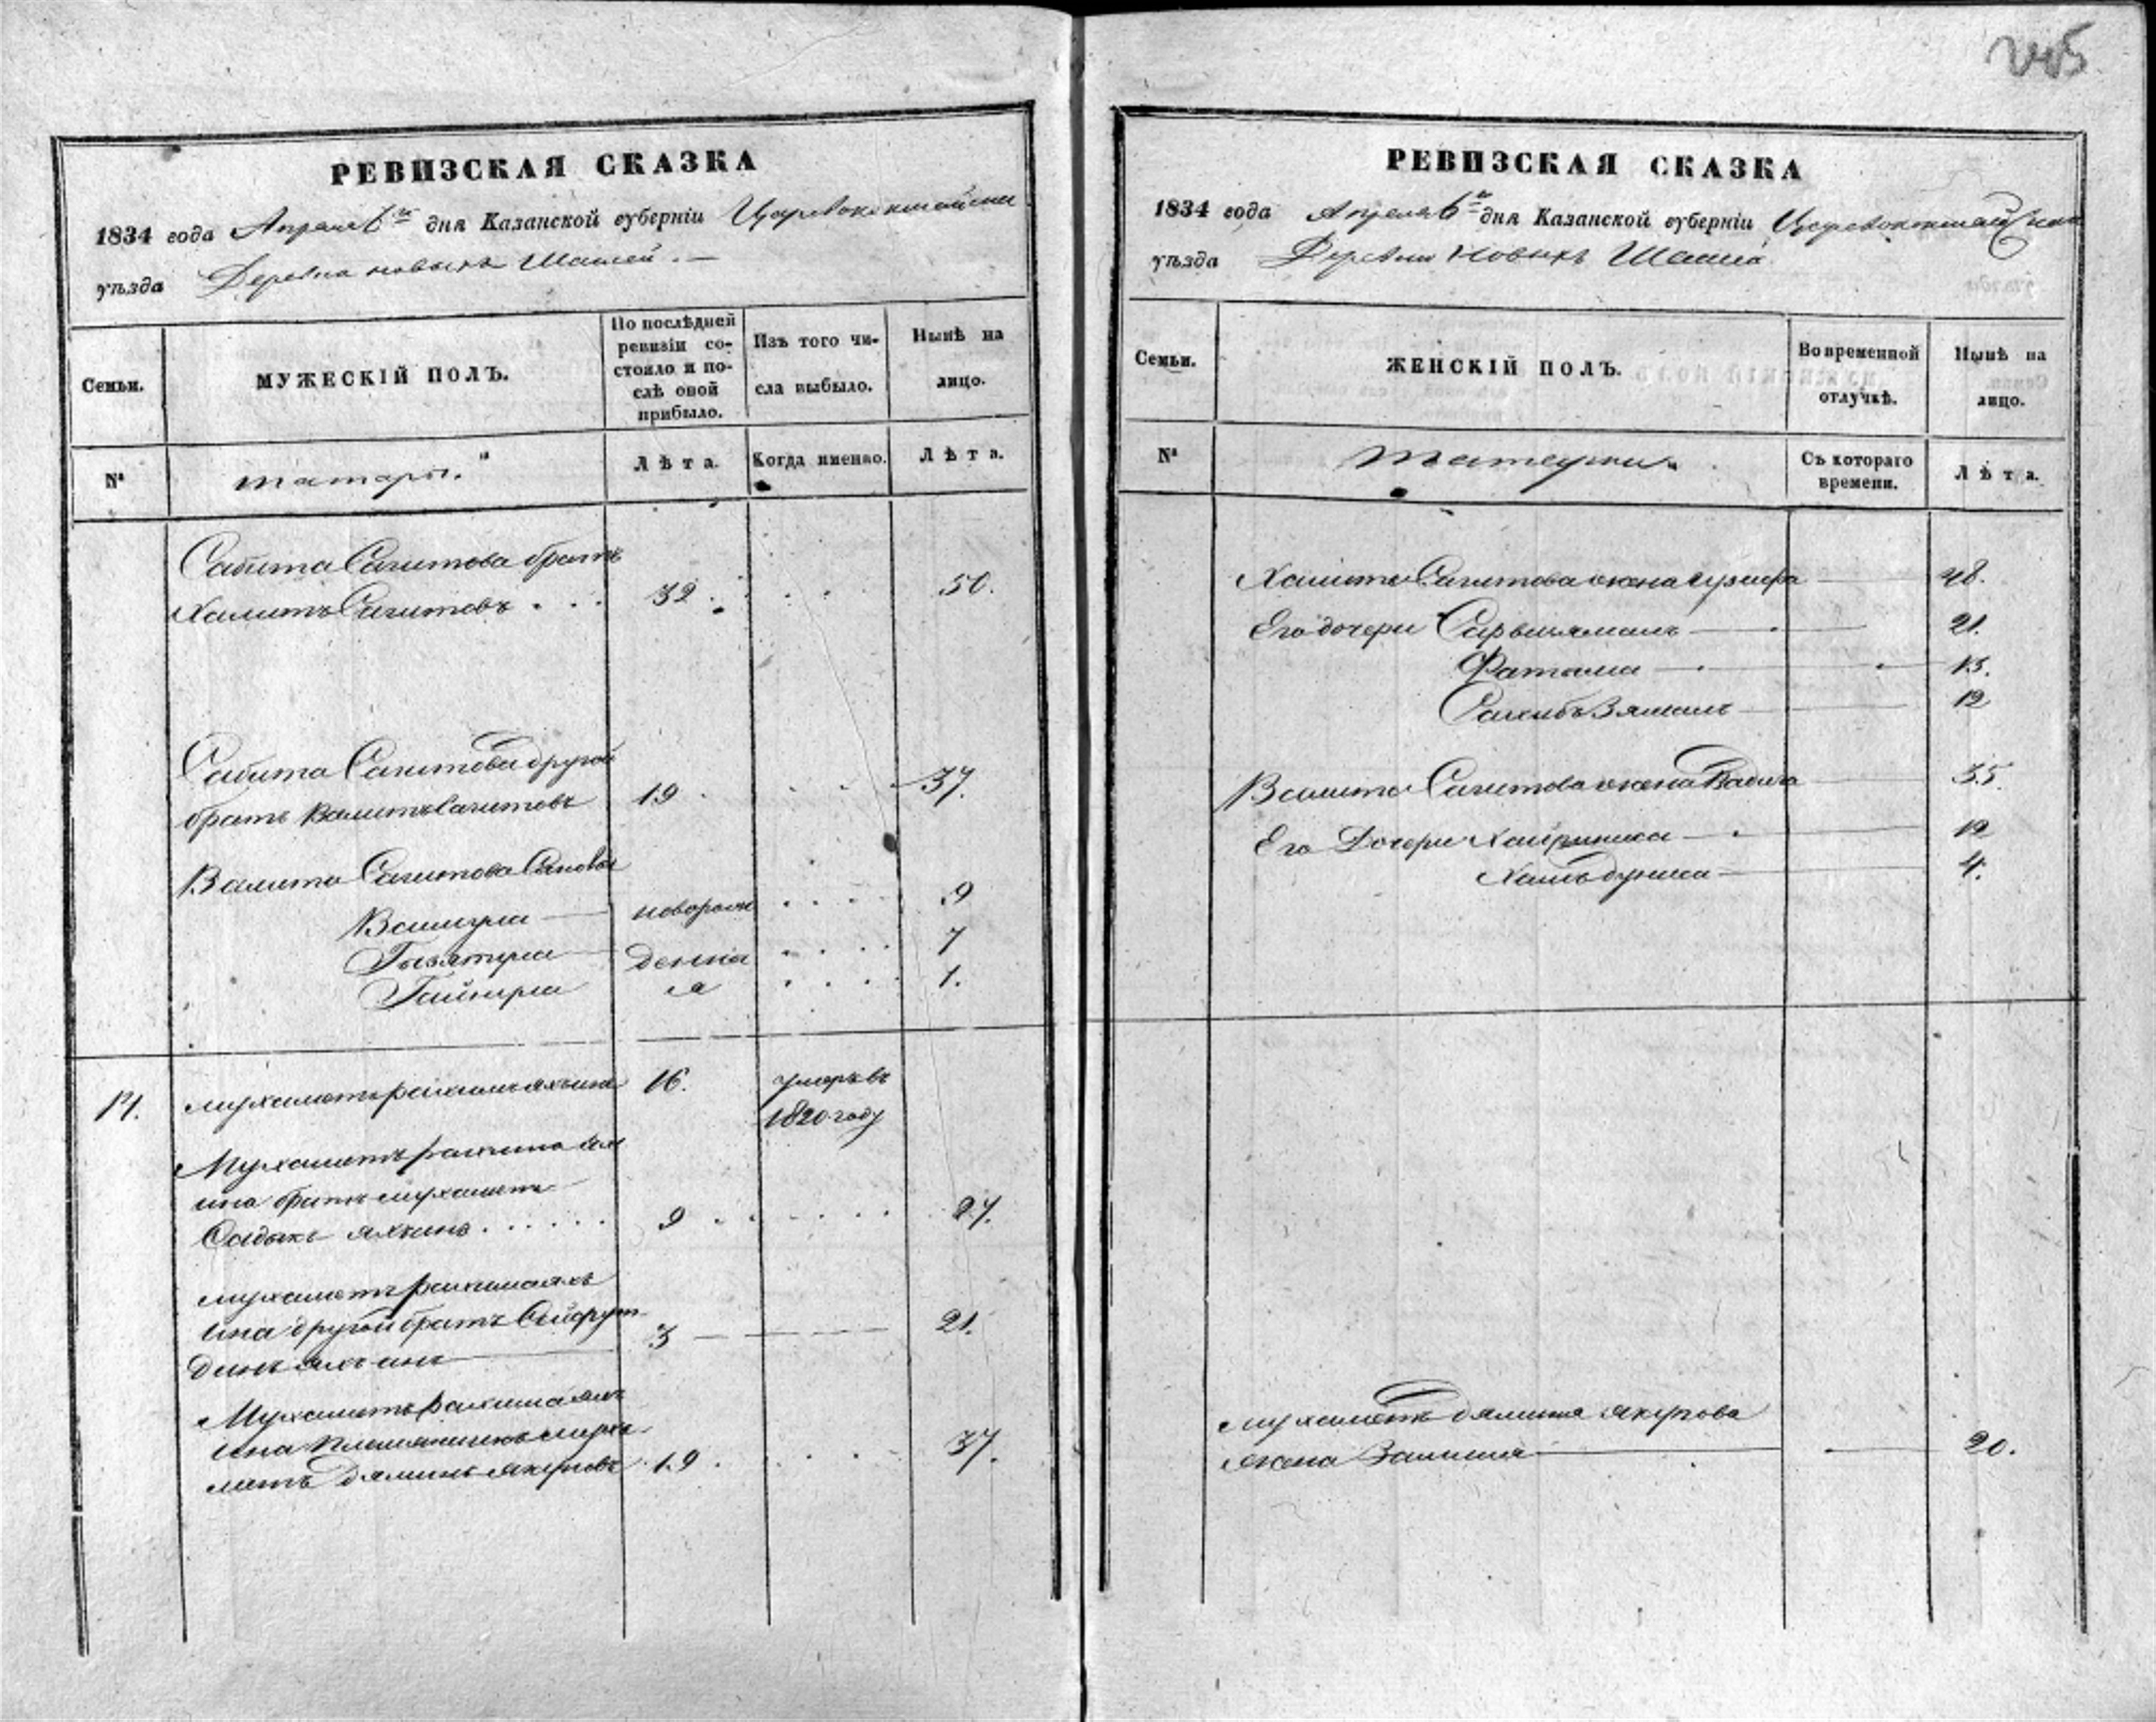 245
РЕВИЗСКАЯ СКАЗКА
1834 года Апреля 6го дня Казанской губерніи Царевококшайска
уѣзда Деревня новыхъ Шашей.
Семьи.
МУЖЕСКІЙ ПОЛЪ.
По послѣдней
ревизіи со-
стояло и по-
слѣ оной
прибыло.
Изъ того чи-
сла выбыло.
Нынѣ на
лицо.
№
татары.
Лѣта.
Когда именно.
Лѣта.
Сабита Сагитова братъ
Халитъ Сагитовъ 32. 50.
Сабита Сагитова другой
братъ Валитъ Сагитовъ 19 37.
Валита Сагитова Сыновья
новорож 9
денны 7
я 1.
14. мухаметърахимъ яхъинъ 16. умеръ въ
1820 году
Мухаметърахима ях
ина братъ мухаметъ
Садыкъ яхъинъ 9 27.
мухаметърахима яхъ
ина другой братъ Сайфут
динъ яхъинъ 3 21.
Мухаметърахима яхъ
ина племянникъ муха
метъ дяминь якуповъ 19. 37.
РЕВИЗСКАЯ СКАЗКА
1834 года Апреля 6го дня Казанской губерніи Царевококшайска
уѣзда Деревни Новыхъ Шашей
Семьи.
ЖЕНСКІЙ ПОЛЪ.
Во временной
отлучкѣ.
Нынѣ на
лицо.
№
татарки.
Съ котораго
времени.
Лѣта.
Халита Сагитова жена 48.
Его дочери 21.
Фатыма 15.
12
Валита Сагитова жена 35.
Его Дочери 12
4.
мухаметъ дяминя якупова
жена 20.